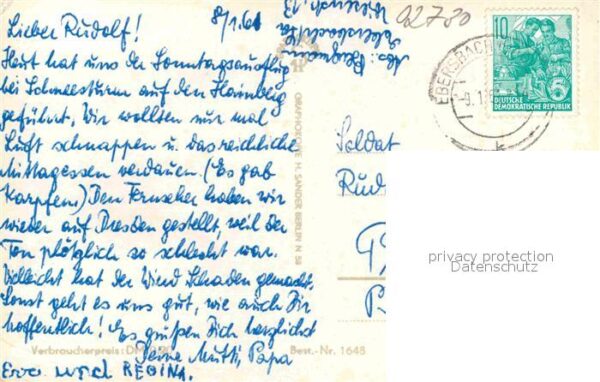 8/1.61
Lieber Rudolf!
Heut hat uns der Sonntagsausflug
bei Schneesturm auf den Hainberg
geführt. Wir wollten nur mal
Luft schnappen u. das reichliche
Mittagessen verdauen (Es gab
Karpfen) Den Fernseher haben wir
wieder auf Dresden gestellt, weil der
Ton plötzlich so schlecht war.
Vielleicht hat der Wind Schaden gemacht.
Sonst geht es uns gut, wie auch Dir
hoffentlich! Es grüßen Dich herzlichst
Deine Mutti, Papa
und REGINA.
Verbraucherpreis: DM
Best.-Nr. 1648
GRAPHOKOPIE H. SANDER BERLIN N 58
92780
EBERSBACH
-9.1
10
DEUTSCHE
DEMOKRATISCHE REPUBLIK
Soldat
Rud
privacy protection
Datenschutz